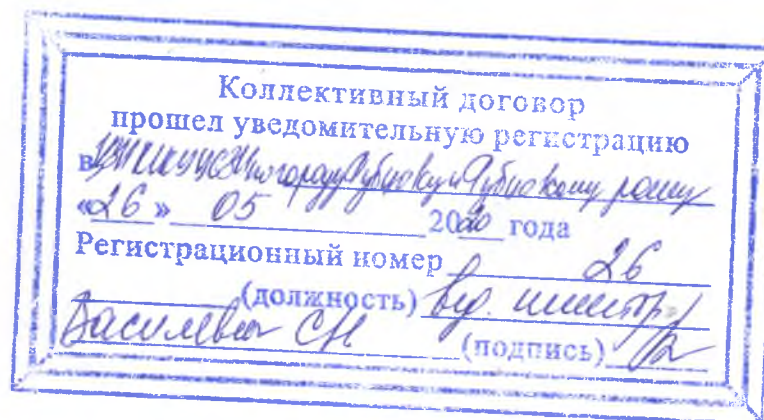 Коллективный договор
прошел уведомительную регистрацию
в по городу Рубцовску и Рубцовскому району
«26» 05 2020 года
Регистрационный номер 26
(должность) вед. инспектор
Василевич СН (подпись)